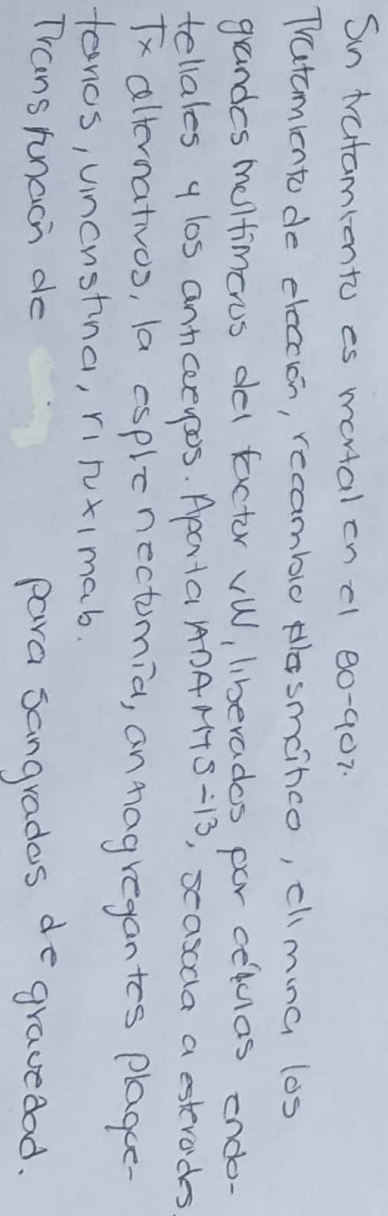 Sin tratamiento es mortal en el 80-90%.
Tratamiento de elección, recambio plasmático, elimina los
grandes multímeros del factor vW, liberados por células endo-
teliales y los anticuerpos. Aporta ADAMTS-13, seasocia a esteroides.
Tx alternativos, la esplenectomía, antiagregantes plaque-
tarios, vincristina, rituximab.
Transfunción de para sangrados de gravedad.